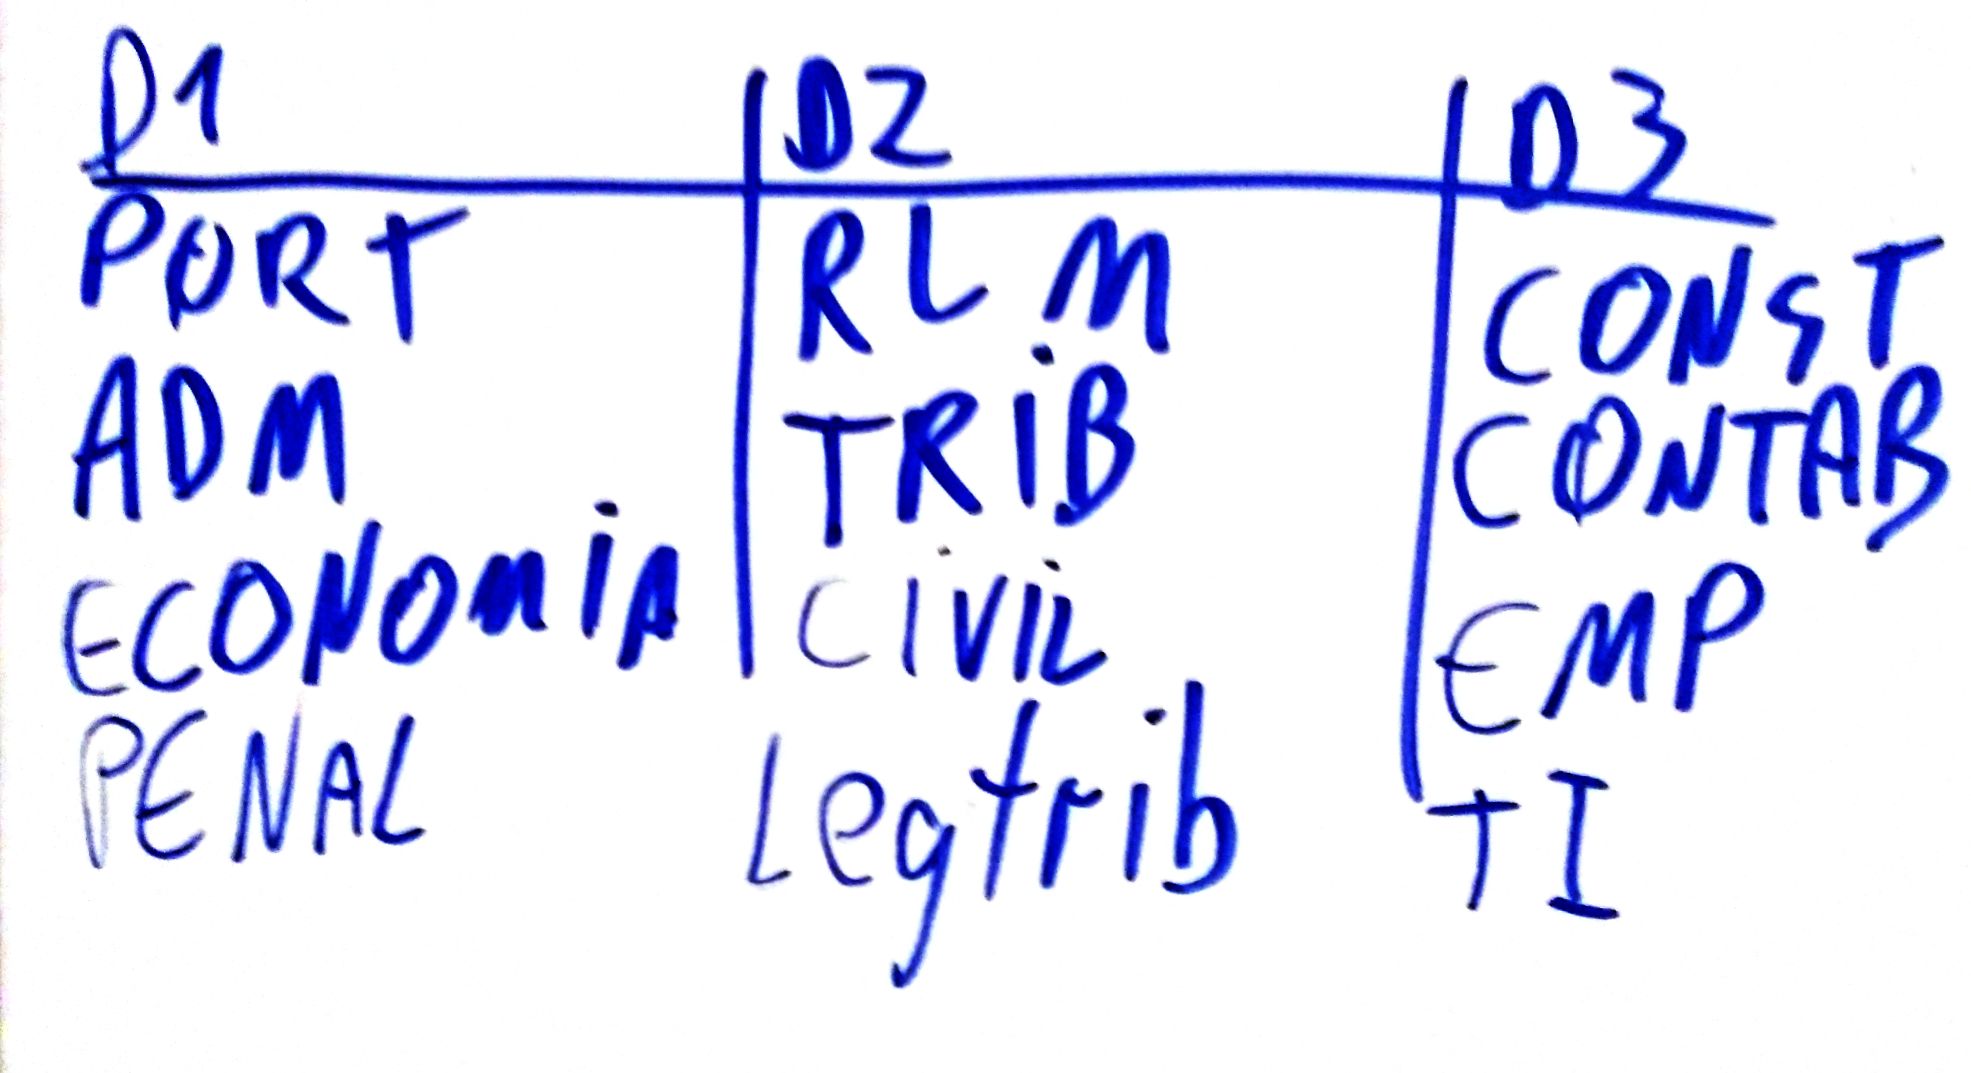 D1 D2 D3
PORT RLM CONST
ADM TRiB CONTAB
ECONOMiA CiViL EMP
PENAL Legtrib TI